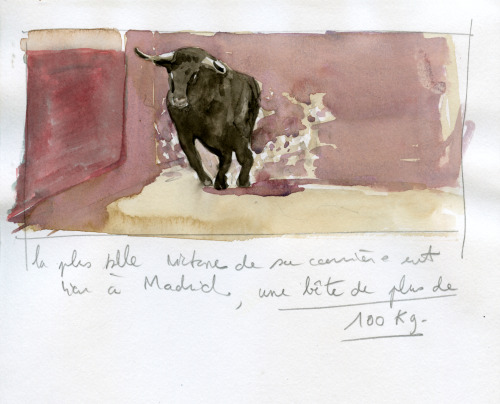 la plus belle victoire de sa carrière est
à Madrid, une bête de plus de
100 Kg.